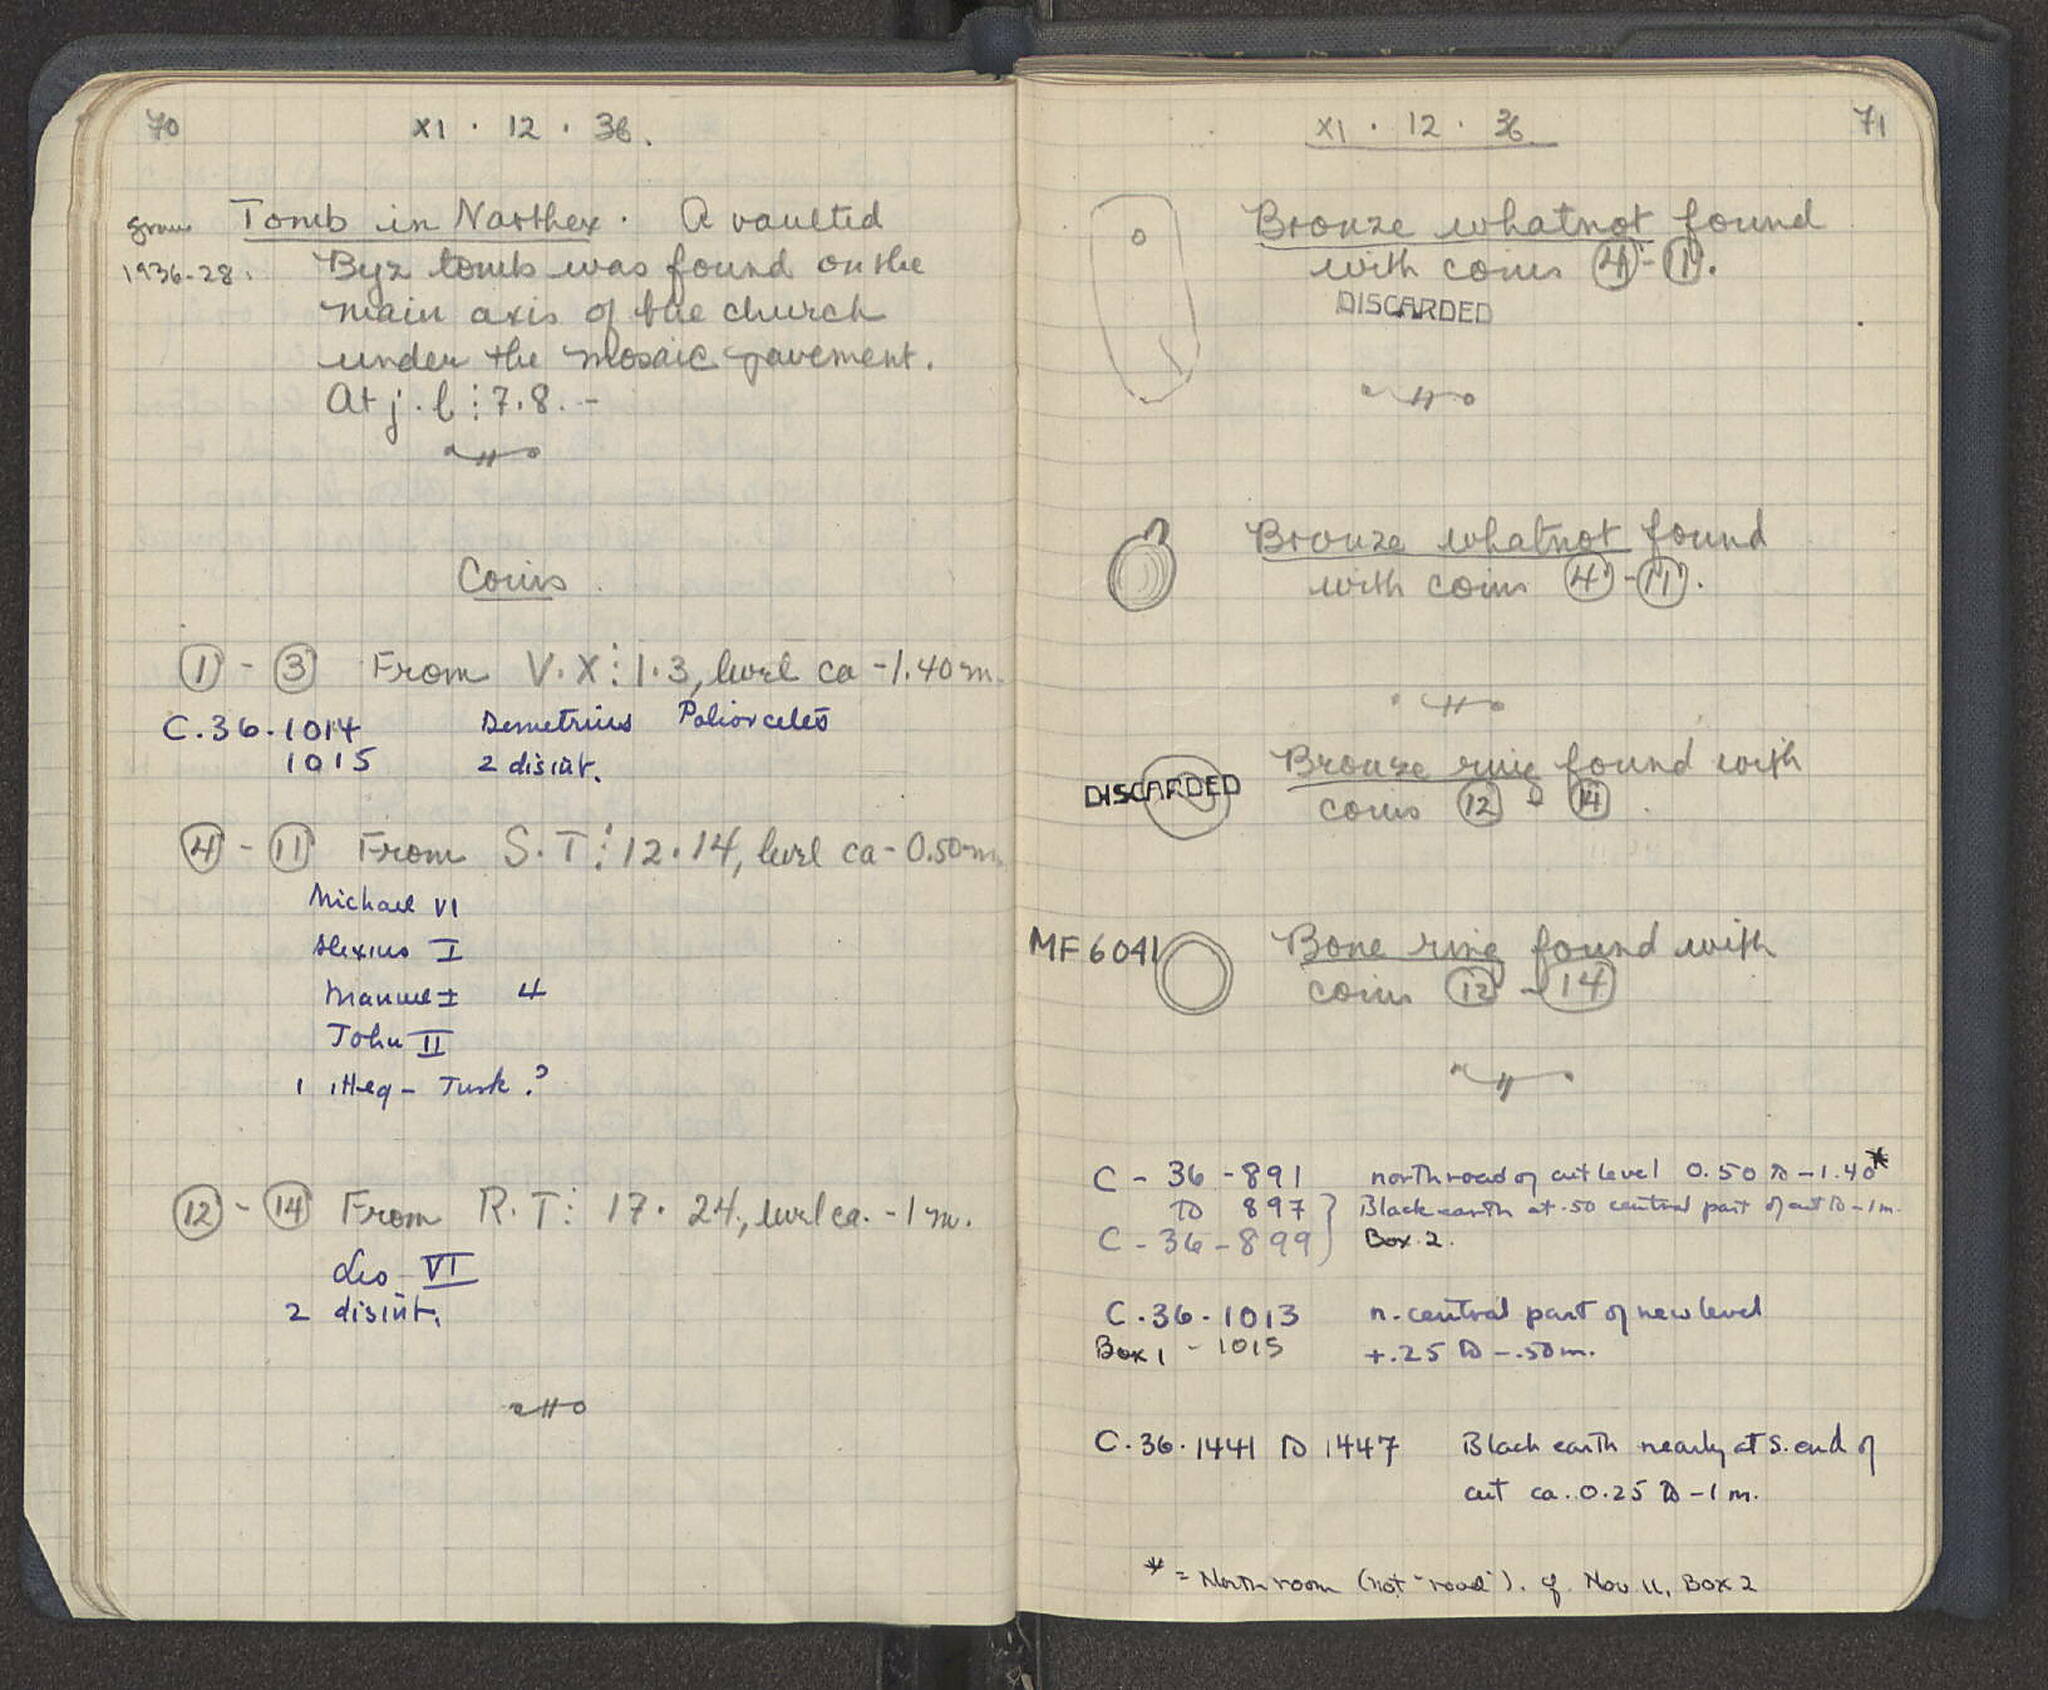 70
XI · 12 · 36.
Grave Tomb in Narthex. A vaulted
1936-28. Byz tomb was found on the
main axis of the church
under the mosaic pavement.
At j.l⋮7.8.-
Coins
1 - 3 From V.X⋮1.3, level ca -1.40 m.
C.36-1014 Demetrius Poliorcetes
1015 2 disint.
4 - 11 From S.T⋮12.14, level ca -0.50 m
Michael VI
Alexius I
Manuel I 4
John II
1 illeg - Turk.?
12 - 14 From R.T⋮17.24, level ca. -1 m.
Leo VI
2 disint.
XI · 12 · 36.
71
Bronze whatnot found
with coins 4-11.
DISCARDED
Bronze whatnot found
with coins 4-11.
Bronze ring found with
DISCARDED
coins 12 - 14.
MF 6041 Bone ring found with
coins 12 - 14
C - 36 - 891 north road of cut level 0.50 to -1.40*
to 897 } Black earth at .50 central part of cut to -1m.
C - 36 - 899 } Box 2.
C.36-1013 n. central part of new level
Box 1 - 1015 +.25 to -.50m.
C.36.1441 to 1447 Black earth nearly at S. end of
cut ca. 0.25 to -1 m.
* = North room (not "road"). cf. Nov. 11, Box 2